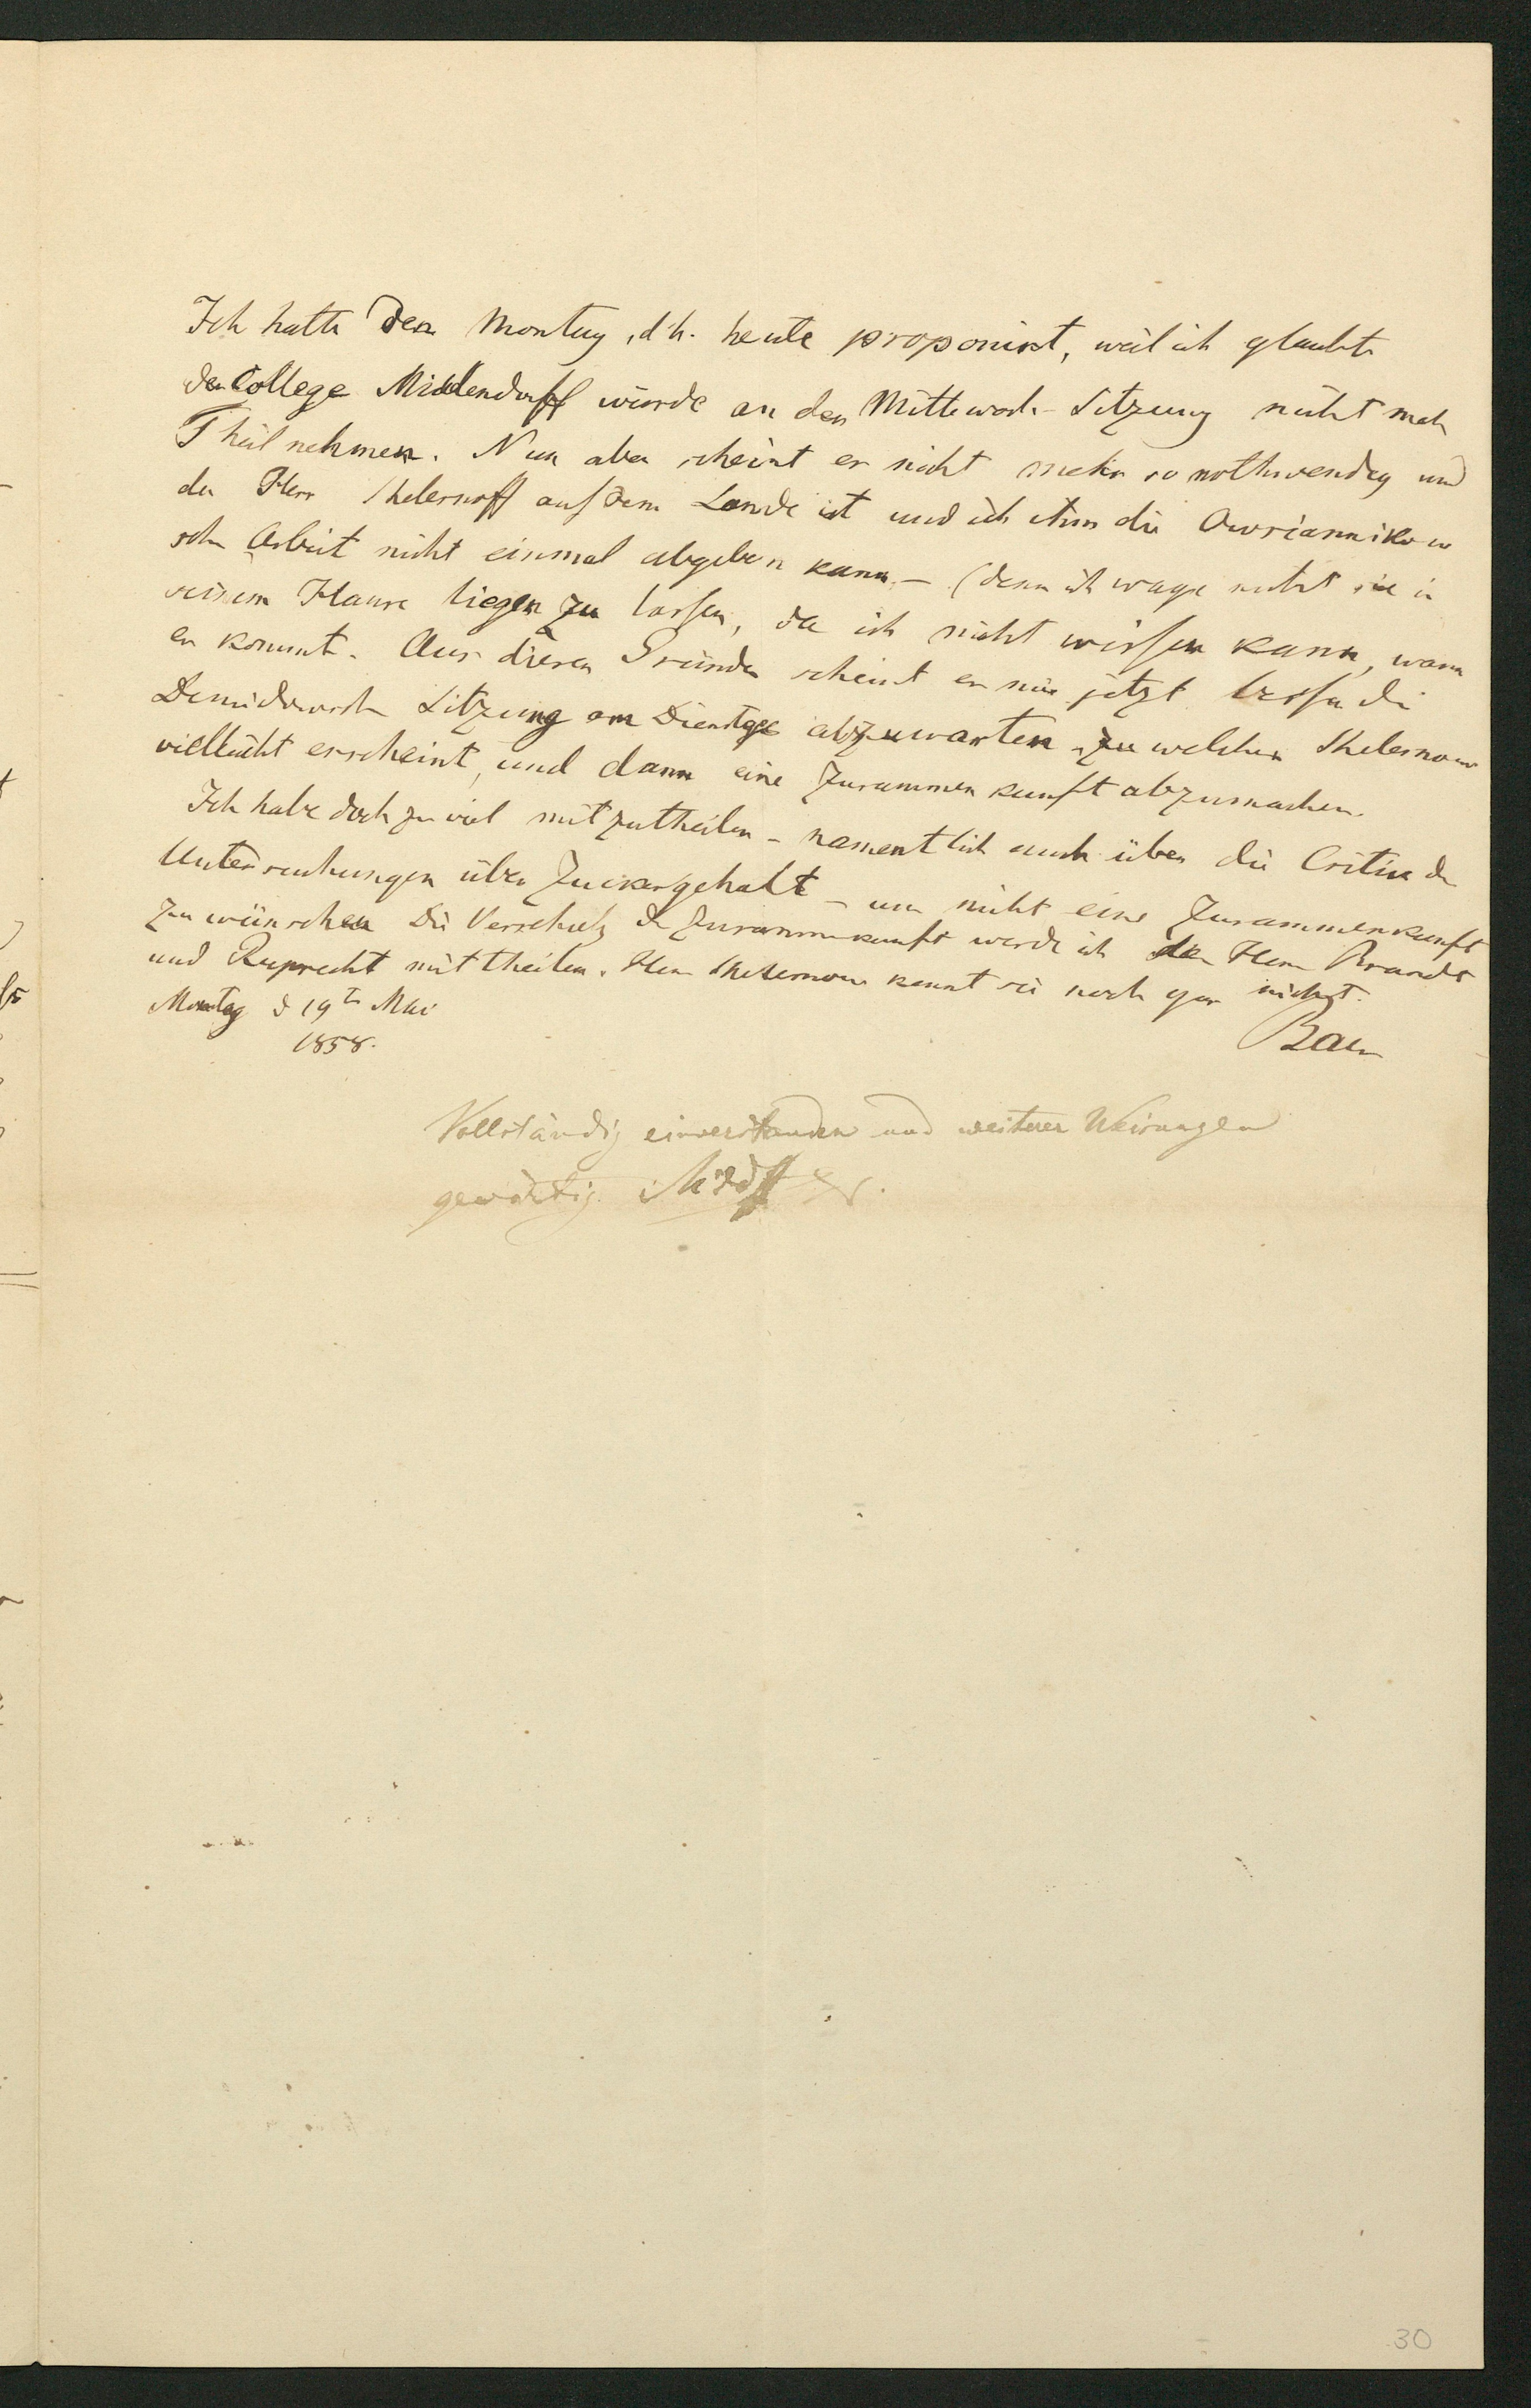 Ich hatte den Montag, d.h. heute proponirt, weil ich glaubte
der College Middendorff würde an der Mittwoch-Sitzung nicht mehr
Theil nehmen. Nun aber scheint es nicht mehr so nothwendig und
da Herr Shelesnoff auf dem Lande ist und ich ihm die Owsiannikow
sche Arbeit nicht einmal abgeben kann – (denn ich wage nicht sie in
seinem Hause liegen zu lassen, da ich nicht wissen kann, wann
er kommt. Aus diesen Gründen scheint es mir jetzt besser die
Demidowsche Sitzung am Dienstage abzuwarten, zu welcher Shelesnow
vielleicht erscheint, und dann eine Zusammenkunft abzumachen.
Ich habe doch zu viel mitzutheilen – namentlich auch über die Critik der
Untersuchungen über Zuckergehalt – um nicht eine Zusammenkunft
zu wünschen Die Verschub der Zusammenkunft werde ich den Herrn Brandt
und Ruprecht mittheilen. Herr Shelesnow kennt sie noch gar nicht.
Montag d 19ten Mai
1858.
Baer
Vollständig einverstanden und weiterer Weisungen
gewärtig. Mddff
30